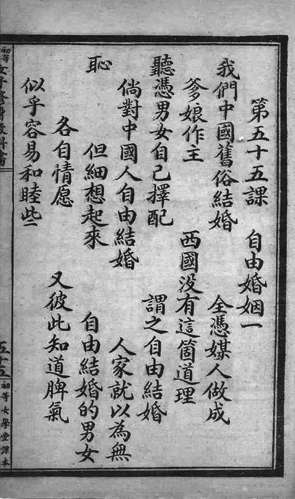 第五十五課　自由婚姻一
我們中國舊俗結婚　全憑媒人做成
爹娘作主　西國没有這箇道理
聽憑男女自己擇配　謂之自由結婚
倘對中國人自由結婚　人家就以為無
恥　但細想起來　自由結婚的男女
各自情愿　又彼此知道脾氣
似乎容易和睦些
初等女學堂課本